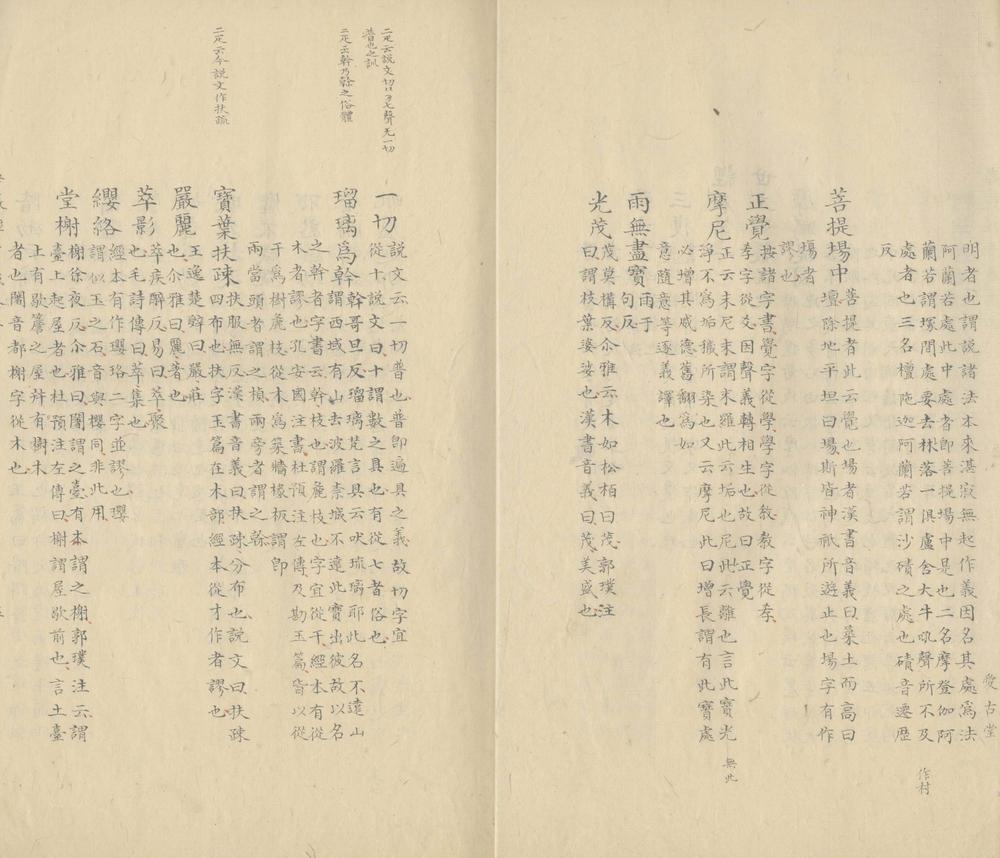 明者也謂說諸法本來湛寂無起作義因名其處為法
阿蘭若處此中處者即菩提場中是也二名摩登伽阿
蘭若謂塚間處要去林落一俱盧舍大牛吼聲所不及
處者也三名檀陁迦阿蘭若謂沙磧之處也磧音遷歷
反
菩提場中 菩提者此云覺也場者漢書音義曰築土而高曰
壇除地平坦曰場斯皆神祇所遊止也場字有作
塲者
謬也
正覺 按諸字書覺字從學學字從教教字從孝
孝字從爻因聲義轉相生也故曰正覺
摩尼 正云末尼末謂末羅此云垢也尼此云離也言此寶光
淨不為垢穢所染也又云摩尼此曰增長謂有此寶處
必增其威德舊翻為如
意隨意等逐義譯也
雨無盡寶 雨于
句反
光茂 茂莫構反尒雅云木如松柏曰茂郭璞注
曰謂枝葉婆娑也漢書音義曰茂美盛也
愛古堂
作村
無此
二疋云說文切ㄗ刀七聲无一切
普也之訓
二疋云幹乃榦之俗體
二疋云今說文作扶疏
一切 說文云一切普也普即遍具之義故切字宜
從十說文曰十謂數之具也有從七者俗也
瑠璃為幹 幹哥旦反瑠璃梵言具云吠琉璃耶此名不遠山
謂西域有山去波羅柰城不遠此寶出彼故以名
之幹者字書云幹枝也謂麁枝也字宜從干經本有從
木者謬也孔安國注書杜預注左傳及勘玉篇皆以從
干為樹麁枝從木為築牆椽板謂卽
兩當頭者謂之楨兩旁者謂之榦
寶葉扶踈 扶服無反漢書音義曰扶踈分布也說文曰扶踈
四布也扶字玉篇在木部經本從才作者謬也
嚴麗 王逸楚辭曰嚴莊
也尒雅曰麗著也
萃影 萃疾醉反易曰萃聚
也毛詩傳曰萃集也
纓絡 經本有作瓔珞二字並謬也瓔
謂似玉之石音與櫻同非此用
堂榭 榭徐夜反尒雅曰闍謂之臺有本謂之榭郭璞注云謂
臺上起屋者也杜預注左傳曰榭謂屋歇前也言土臺
上有歇簷之屋并有樹木
者也闍音都榭字從木也